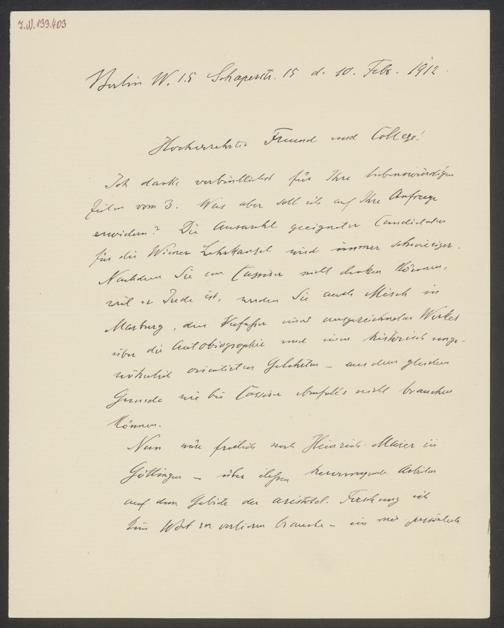 I.N. 199.403
Berlin W. 15 Schaperstr. 15 d. 10. Febr. 1912.
Hochverehrter Freund und College!
Ich danke verbindlichst für Ihre liebenswürdigen
Zeilen vom 3. Was aber soll ich auf Ihre Anfrage
erwidern? Die Auswahl geeigneter Candidaten
für die Wiener Lehrkanzel wird immer schwieriger.
Nachdem Sie an Cassirer nicht denken können,
weil er Jude ist, werden Sie auch Misch in
Marburg, den Verfasser eines ausgezeichneten Werkes
über die Autobiographie und einen historisch unge-
wöhnlich orientierten Gelehrten – aus dem gleichen
Grunde wie bei Cassirer ebenfalls nicht brauchen
können.
Nun wäre freilich noch Heinrich Maier in
Göttingen – über dessen hervorragende Arbeiten
auf dem Gebiete der aristotel. Forschung ich
kein Wort zu verlieren brauche – ein mir persönlich